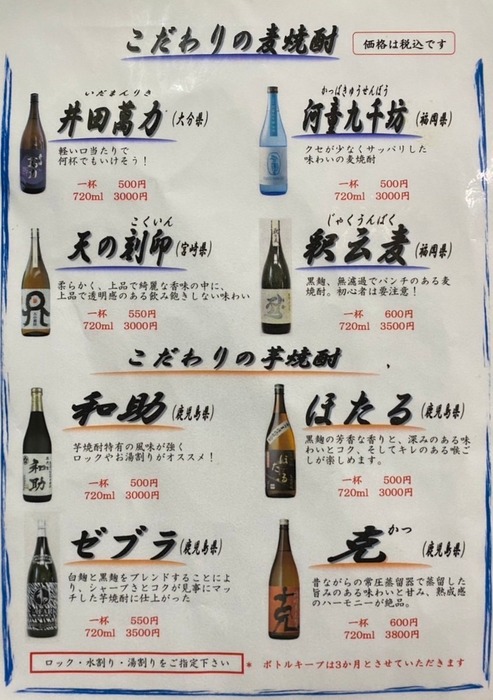 こだわりの麦焼酎
価格は税込です
いだまんりき
井田萬力(大分県)
軽い口当たりで
何杯でもいけそう！
一杯 500円
720ml 3000円
かっぱきゅうせんぼう
河童九千坊(福岡県)
クセが少なくサッパリした
味わいの麦焼酎
一杯 500円
720ml 3000円
こくいん
天の刻印(宮崎県)
柔らかく、上品で綺麗な香味の中に、
上品で透明感のある飲み飽きしない味わい
一杯 550円
720ml 3000円
じゃくうんばく
釈云麦(福岡県)
黒麹、無濾過でパンチのある麦
焼酎。初心者は要注意！
一杯 600円
720ml 3500円
こだわりの芋焼酎
和助(鹿児島県)
芋焼酎特有の風味が強く
ロックやお湯割りがオススメ！
一杯 500円
720ml 3000円
和助
ほたる(鹿児島県)
黒麹の芳香な香りと、深みのある味
わいとコク、そしてキレのある喉ご
しが楽しめます。
一杯 500円
720ml 3000円
ほたる
ゼブラ(鹿児島県)
白麹と黒麹をブレンドすることによ
り、シャープさとコクが見事にマッ
チした芋焼酎に仕上がった
一杯 550円
720ml 3500円
かつ
克(鹿児島県)
昔ながらの常圧蒸留器で蒸留した
旨みのある味わいと甘み、熟成感
のハーモニーが絶品。
一杯 600円
720ml 3800円
克
ロック・水割り・湯割りをご指定下さい
* ボトルキープは3か月とさせていただきます